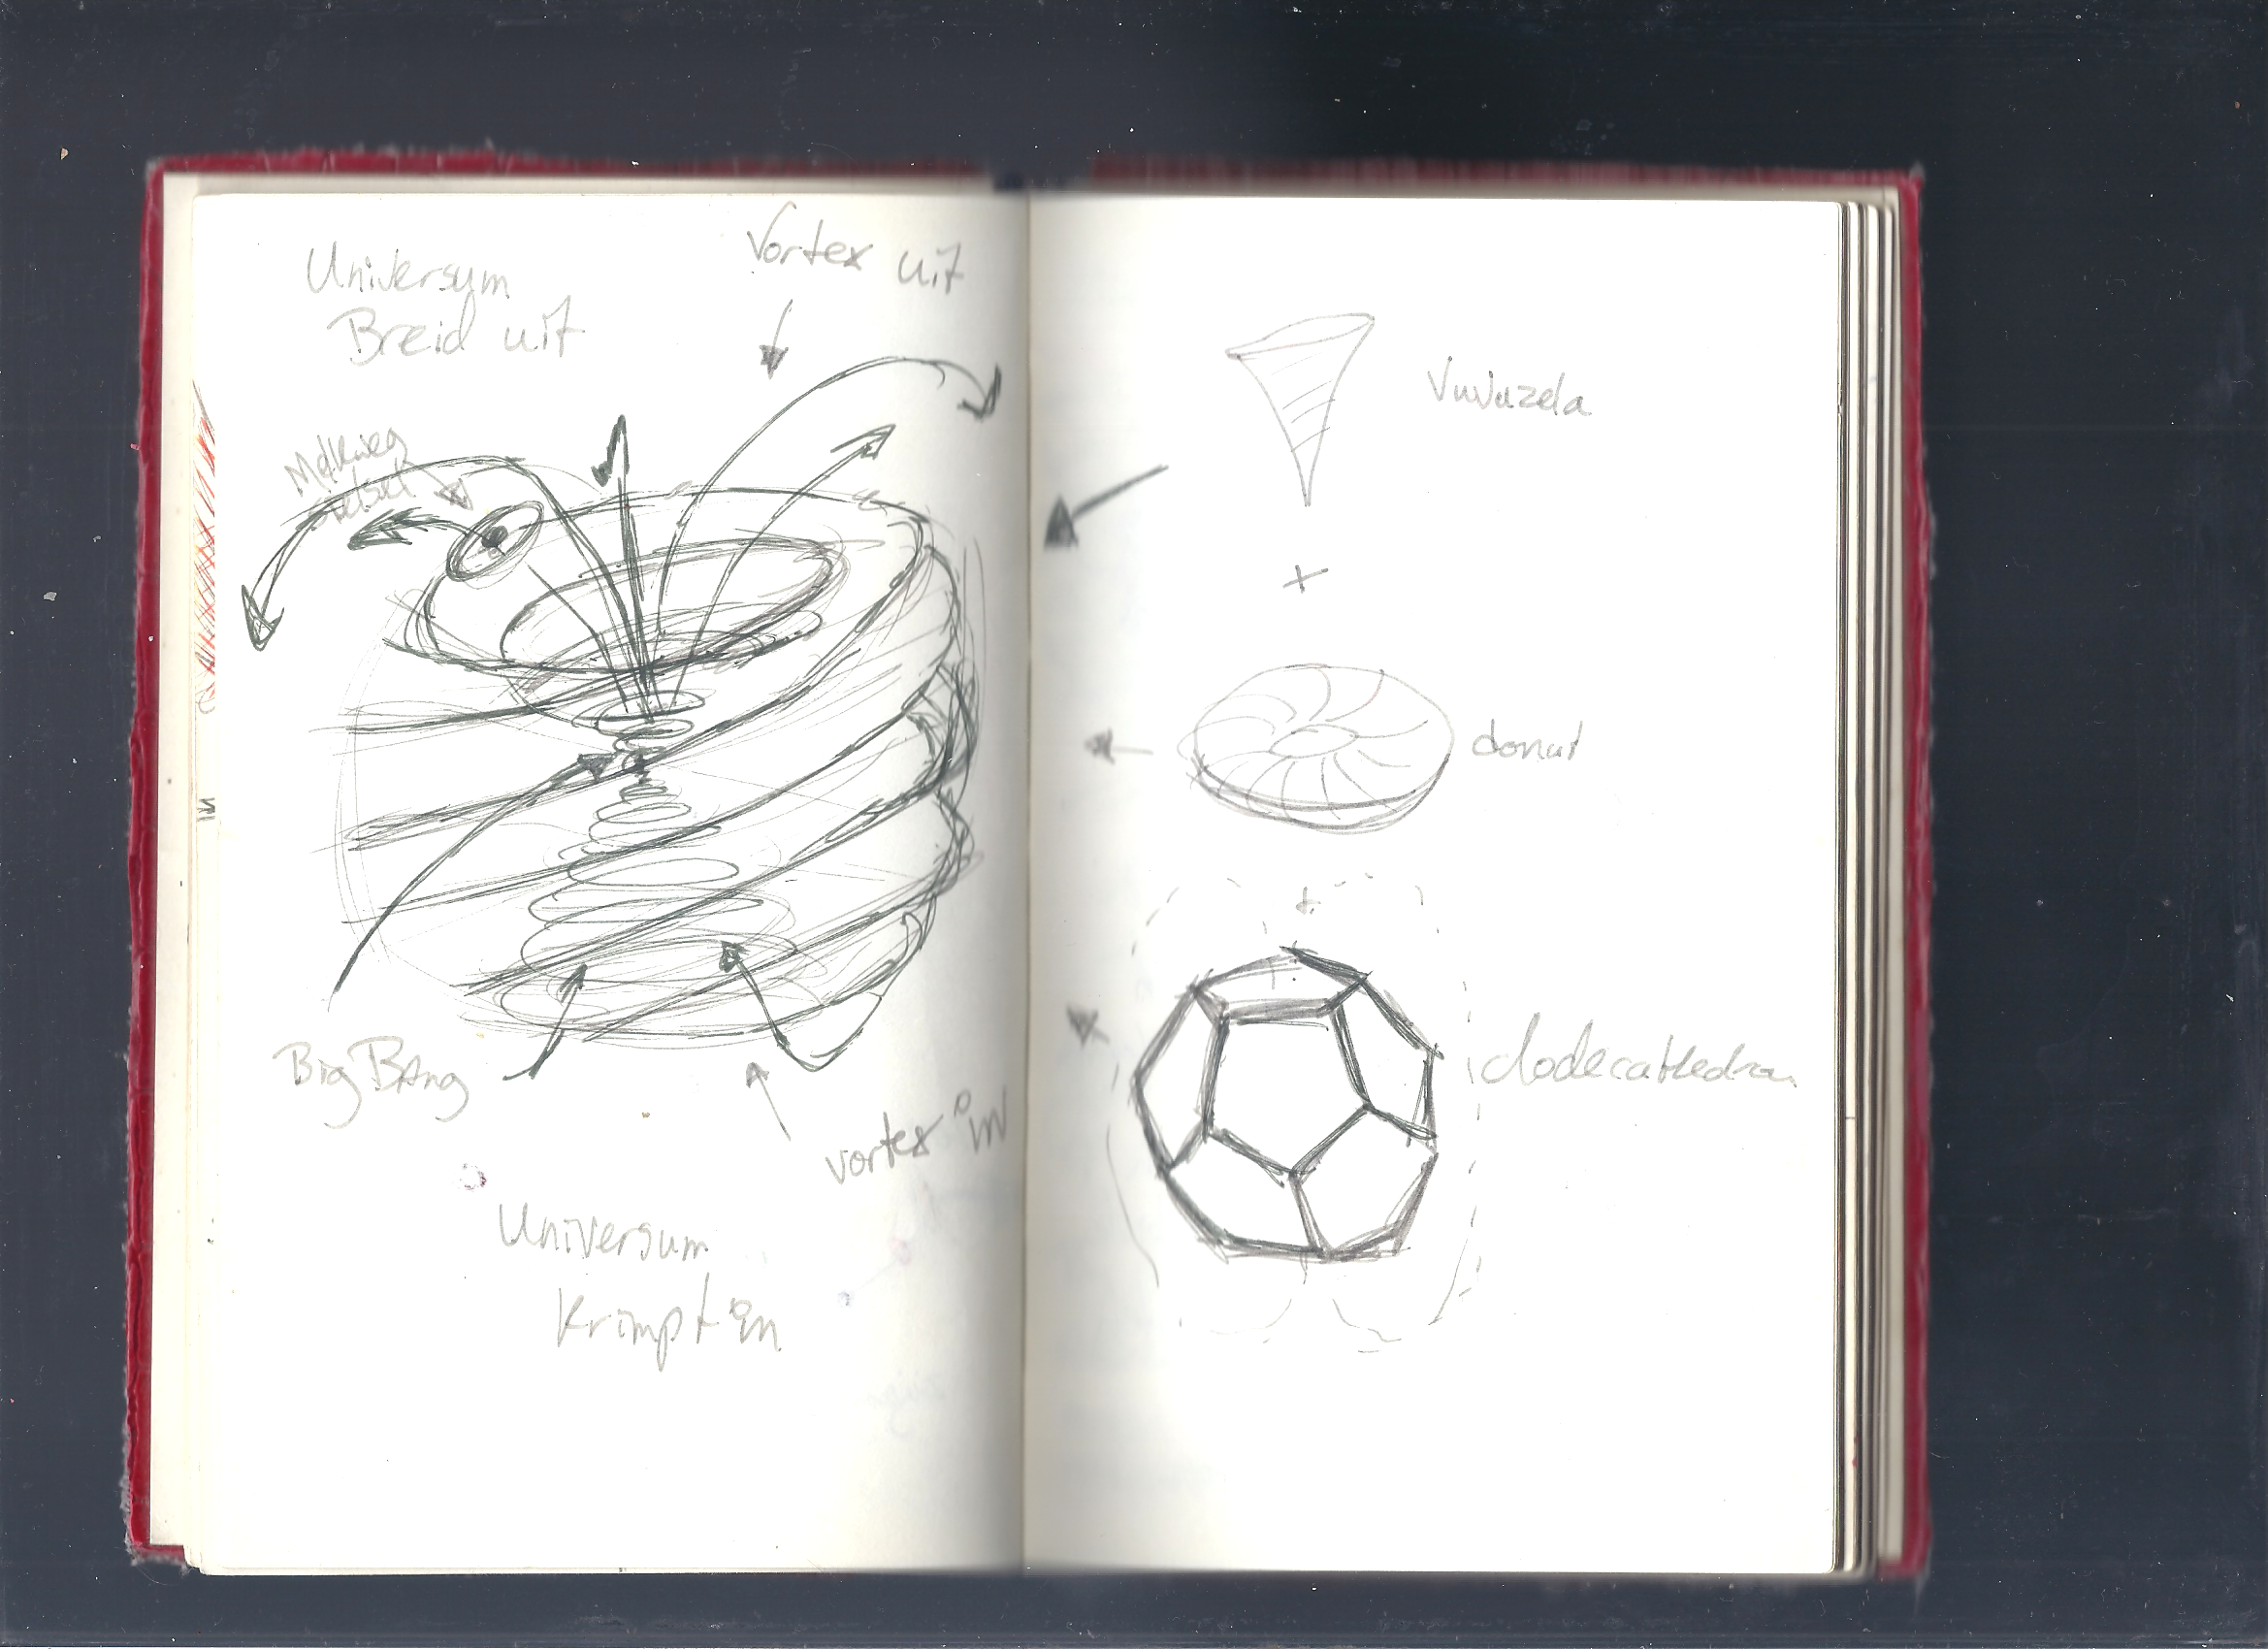 Universum
Breid uit
Vortex uit
Melkweg
stelsel
Big BAng
vortex in
Universum
Krimpt in
Vuvuzela
+
donut
+
dodecathedron